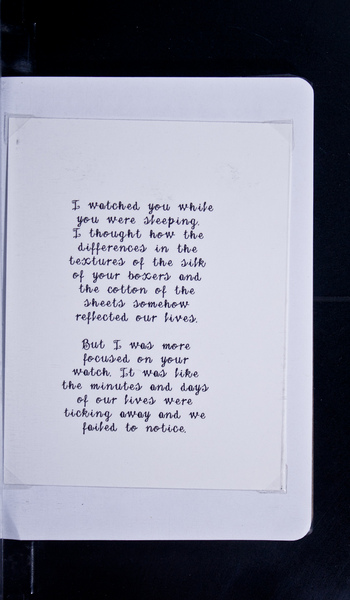 I watched you while
you were sleeping.
I thought how the
differences in the
textures of the silk
of your boxers and
the cotton of the
sheets somehow
reflected our lives.
But I was more
focused on your
watch. It was like
the minutes and days
of our lives were
ticking away and we
failed to notice.